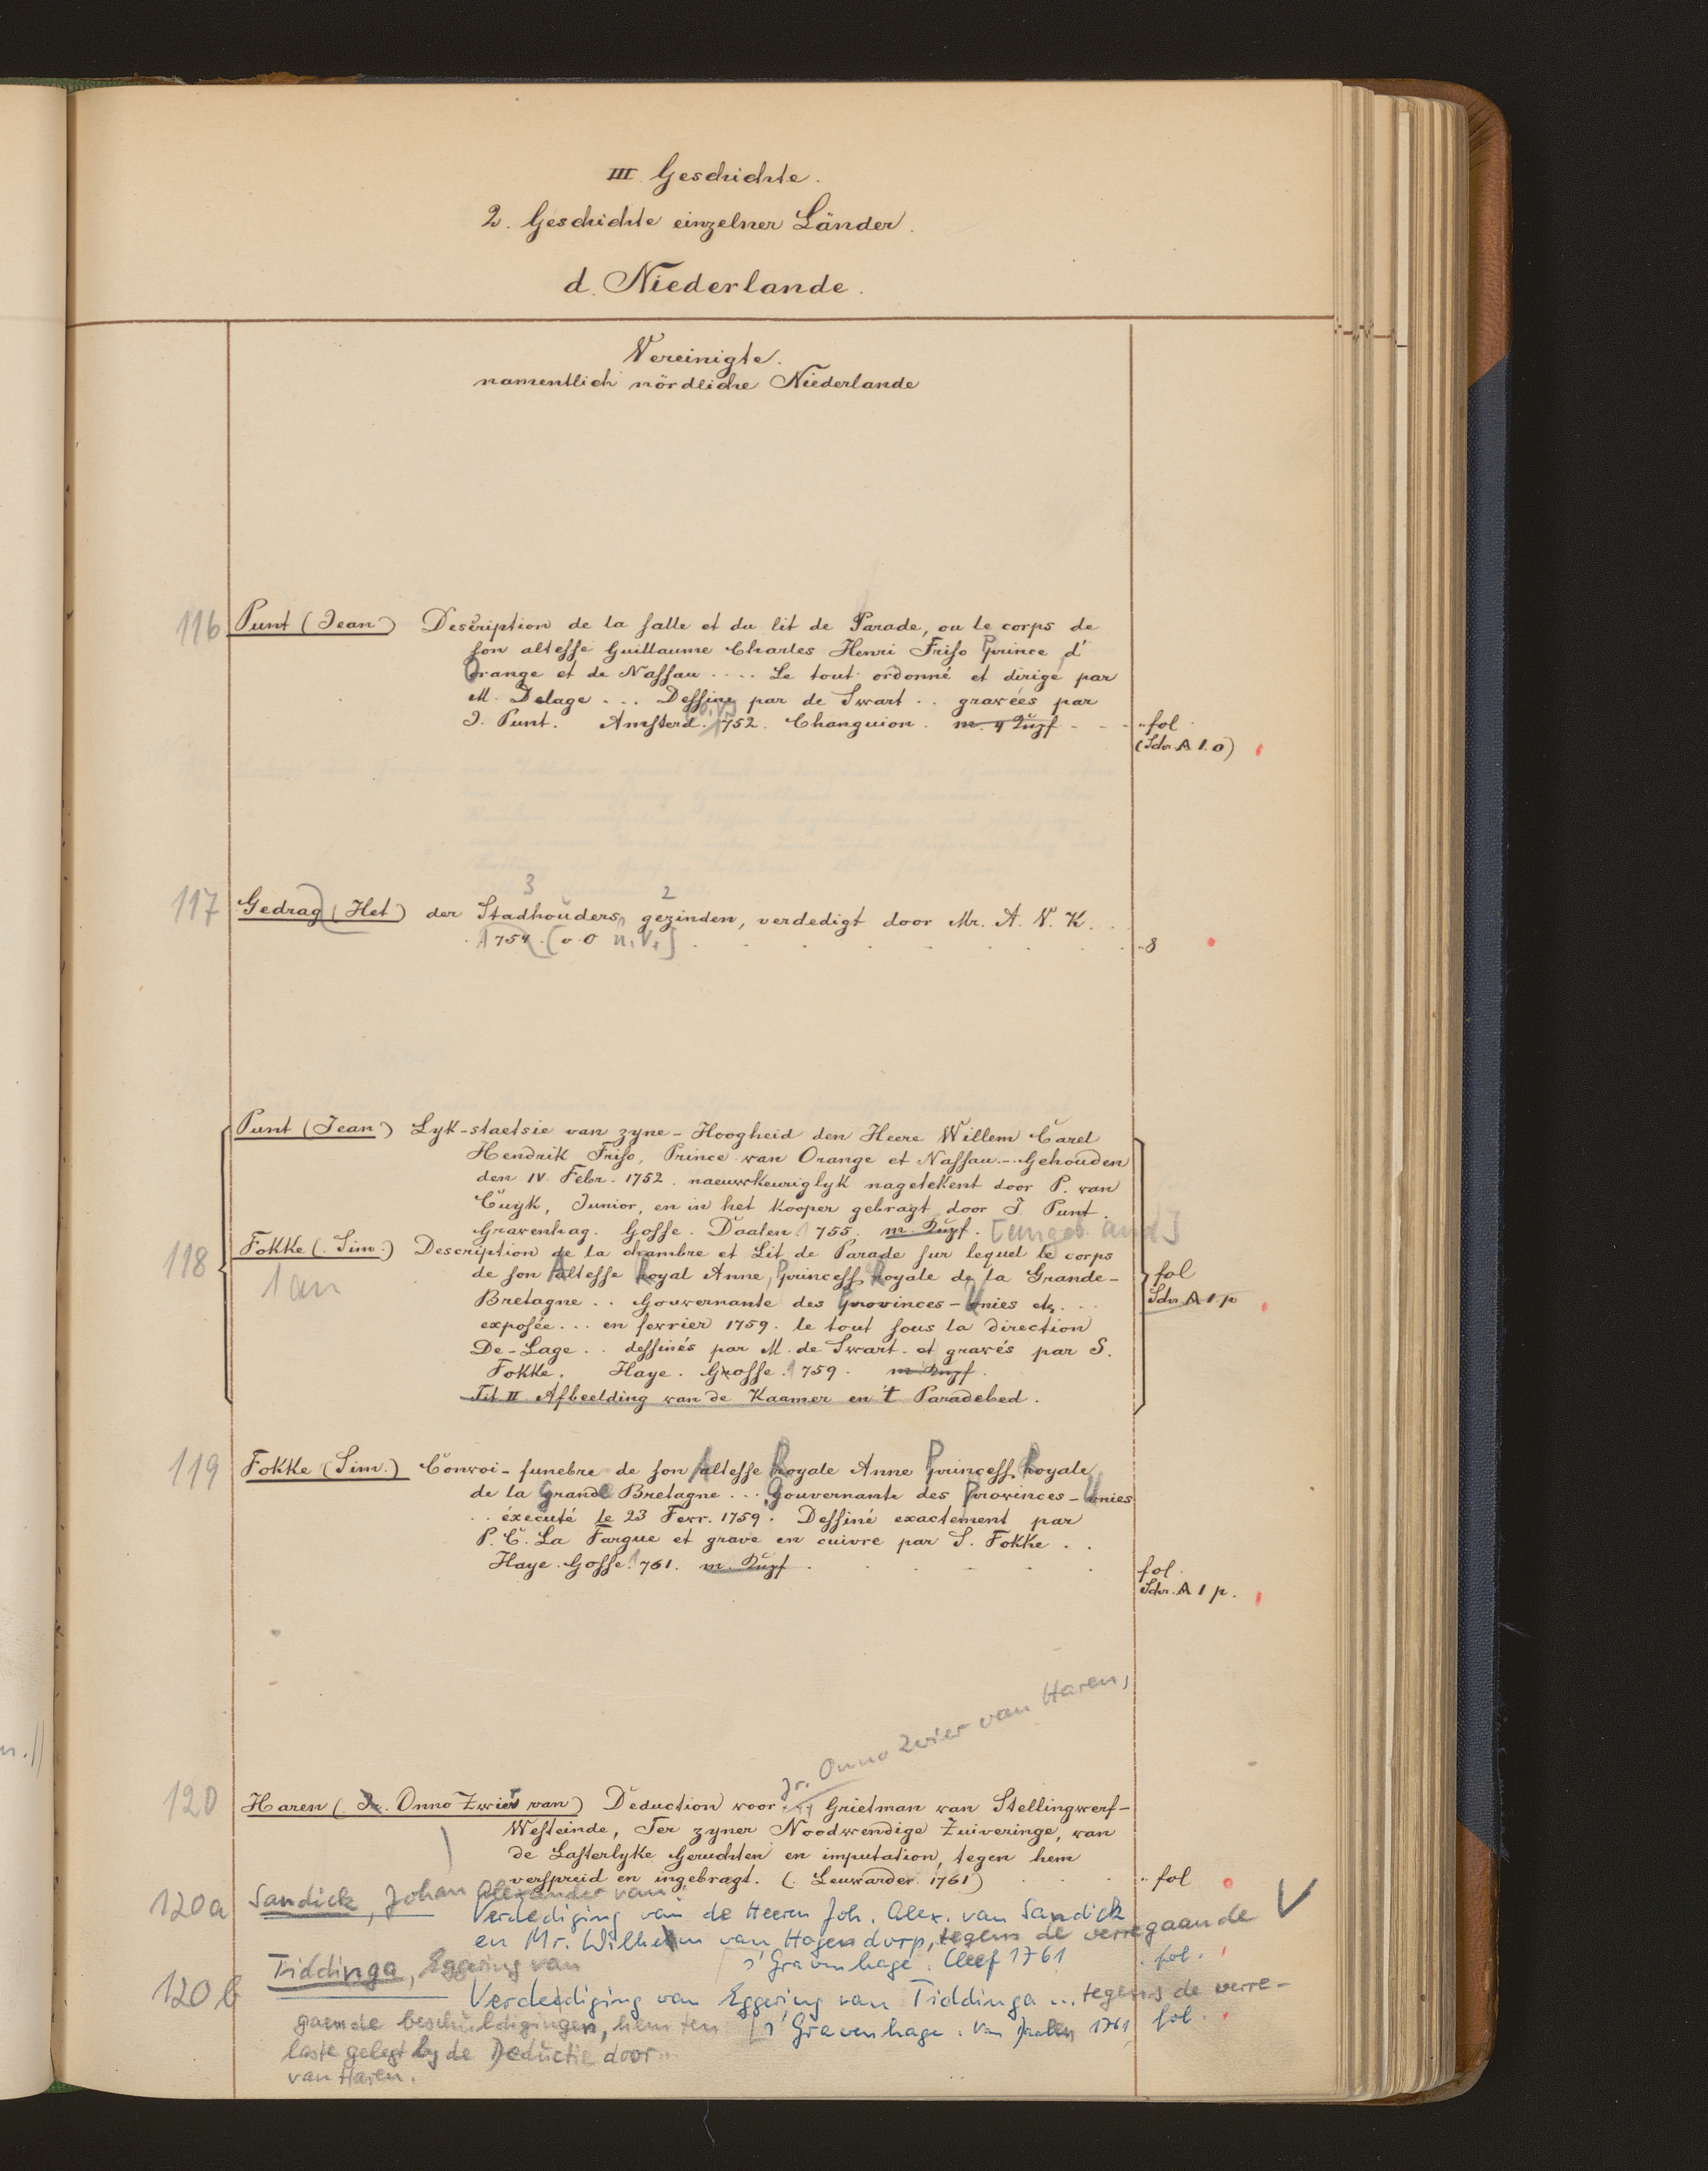 III Geschichte.
2. Geschichte einzelner Länder.
d. Niederlande.
Vereinigte.
namentlich nördliche Niederlande
116 Punt (Jean) Description de la salle et du lit de Parade, ou le corps de
son altesse Guillaume Charles Henri Friso Prince d'
Orange et de Nassau .... Le tout ordonné et dirigé par
M. Delage ... Dessine par de Swart .. gravées par
J. Punt. Amsterd. 1752. Changuion. m. 4 Kupf - - - fol.
(Schr. A 1. o)
117 Gedrag (Het) der Stadhouders gezinden, verdedigt door Mr. A. V. K. . .
3 2
1754. [o O u. V.] 8
Punt (Jean) Lyk-staetsie van zyne-Hoogheid den Heere Willem Carel
Hendrik Friso, Prince van Orange et Nassau.-. Gehouden
den IV. Febr. 1752. naeuwkeuriglyk nagetekent door P. van
Cuyk, Junior, en in het kooper gebragt door J. Punt.
Gravenhag. Gosse. Daalen 1755. m. Kupf.
118 Fokke (Sim.) Description de la chambre et Lit de Parade sur lequel le corps
de son Altesse Royal Anne, Princess Royale de la Grande- fol
Bretagne .. Gouvernante des Provinces-Unies etc. ... Schr. A 1. p
exposée ... en fevrier 1759. le tout sous la direction
De-Lage .. dessinés par M. de Swart. et gravés par S.
Fokke. Haye. Gosse. 1759. m Kupf.
Tit II Afbeelding van de Kaamer en 't Paradebed.
119 Fokke (Sim.) Convoi-funebre de son Altesse Royale Anne Princess Royale
de la Grande Bretagne ... Gouvernante des Provinces-Unies
.. éxecuté le 23 Fevr. 1759. Dessiné exactement par
P. C. La Fargue et grave en cuivre par S. Fokke ..
Haye. Gosse. 1761. m. Kupf. fol.
Schr. A 1 p.
Jr. Onno Zwier van Haren,
120 Haren (Jr. Onno Zwier van) Deduction voor ... Grietman van Stellingwerf-
Westeinde, Ter zyner Noodwendige Zuiveringe, van
de Lasterlyke Geruchten en imputation, tegen hem
verspreid en ingebragt. (. Leuwarder. 1761) fol
120a Sandick, Johan Alexander van:
Verdediging van de Heeren Joh. Alex. van Sandick
en Mr. Wilhelm van Hogendorp, tegens de verregaande V
's Gravenhage. Cleef 1761 fol.
120b Tiddinga, Eggering van
Verdediging van Eggering van Tiddinga ... tegens de verre-
gaende beschuldigingen, hem ten ['s Gravenhage. Van Daalen 1761 fol.
laste gelegt by de Deductie door ..
van Haren.